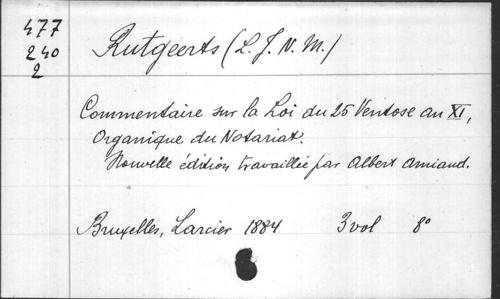 477
240
2
Rutgeerts (L. J. N. M.)
Commentaire sur la Loi du 25 Ventose an XI,
Organique du Notariat.
Nouvelle édition travaillée par Albert Amiaud.
Bruxelles, Larcier 1884 3 vol 8°